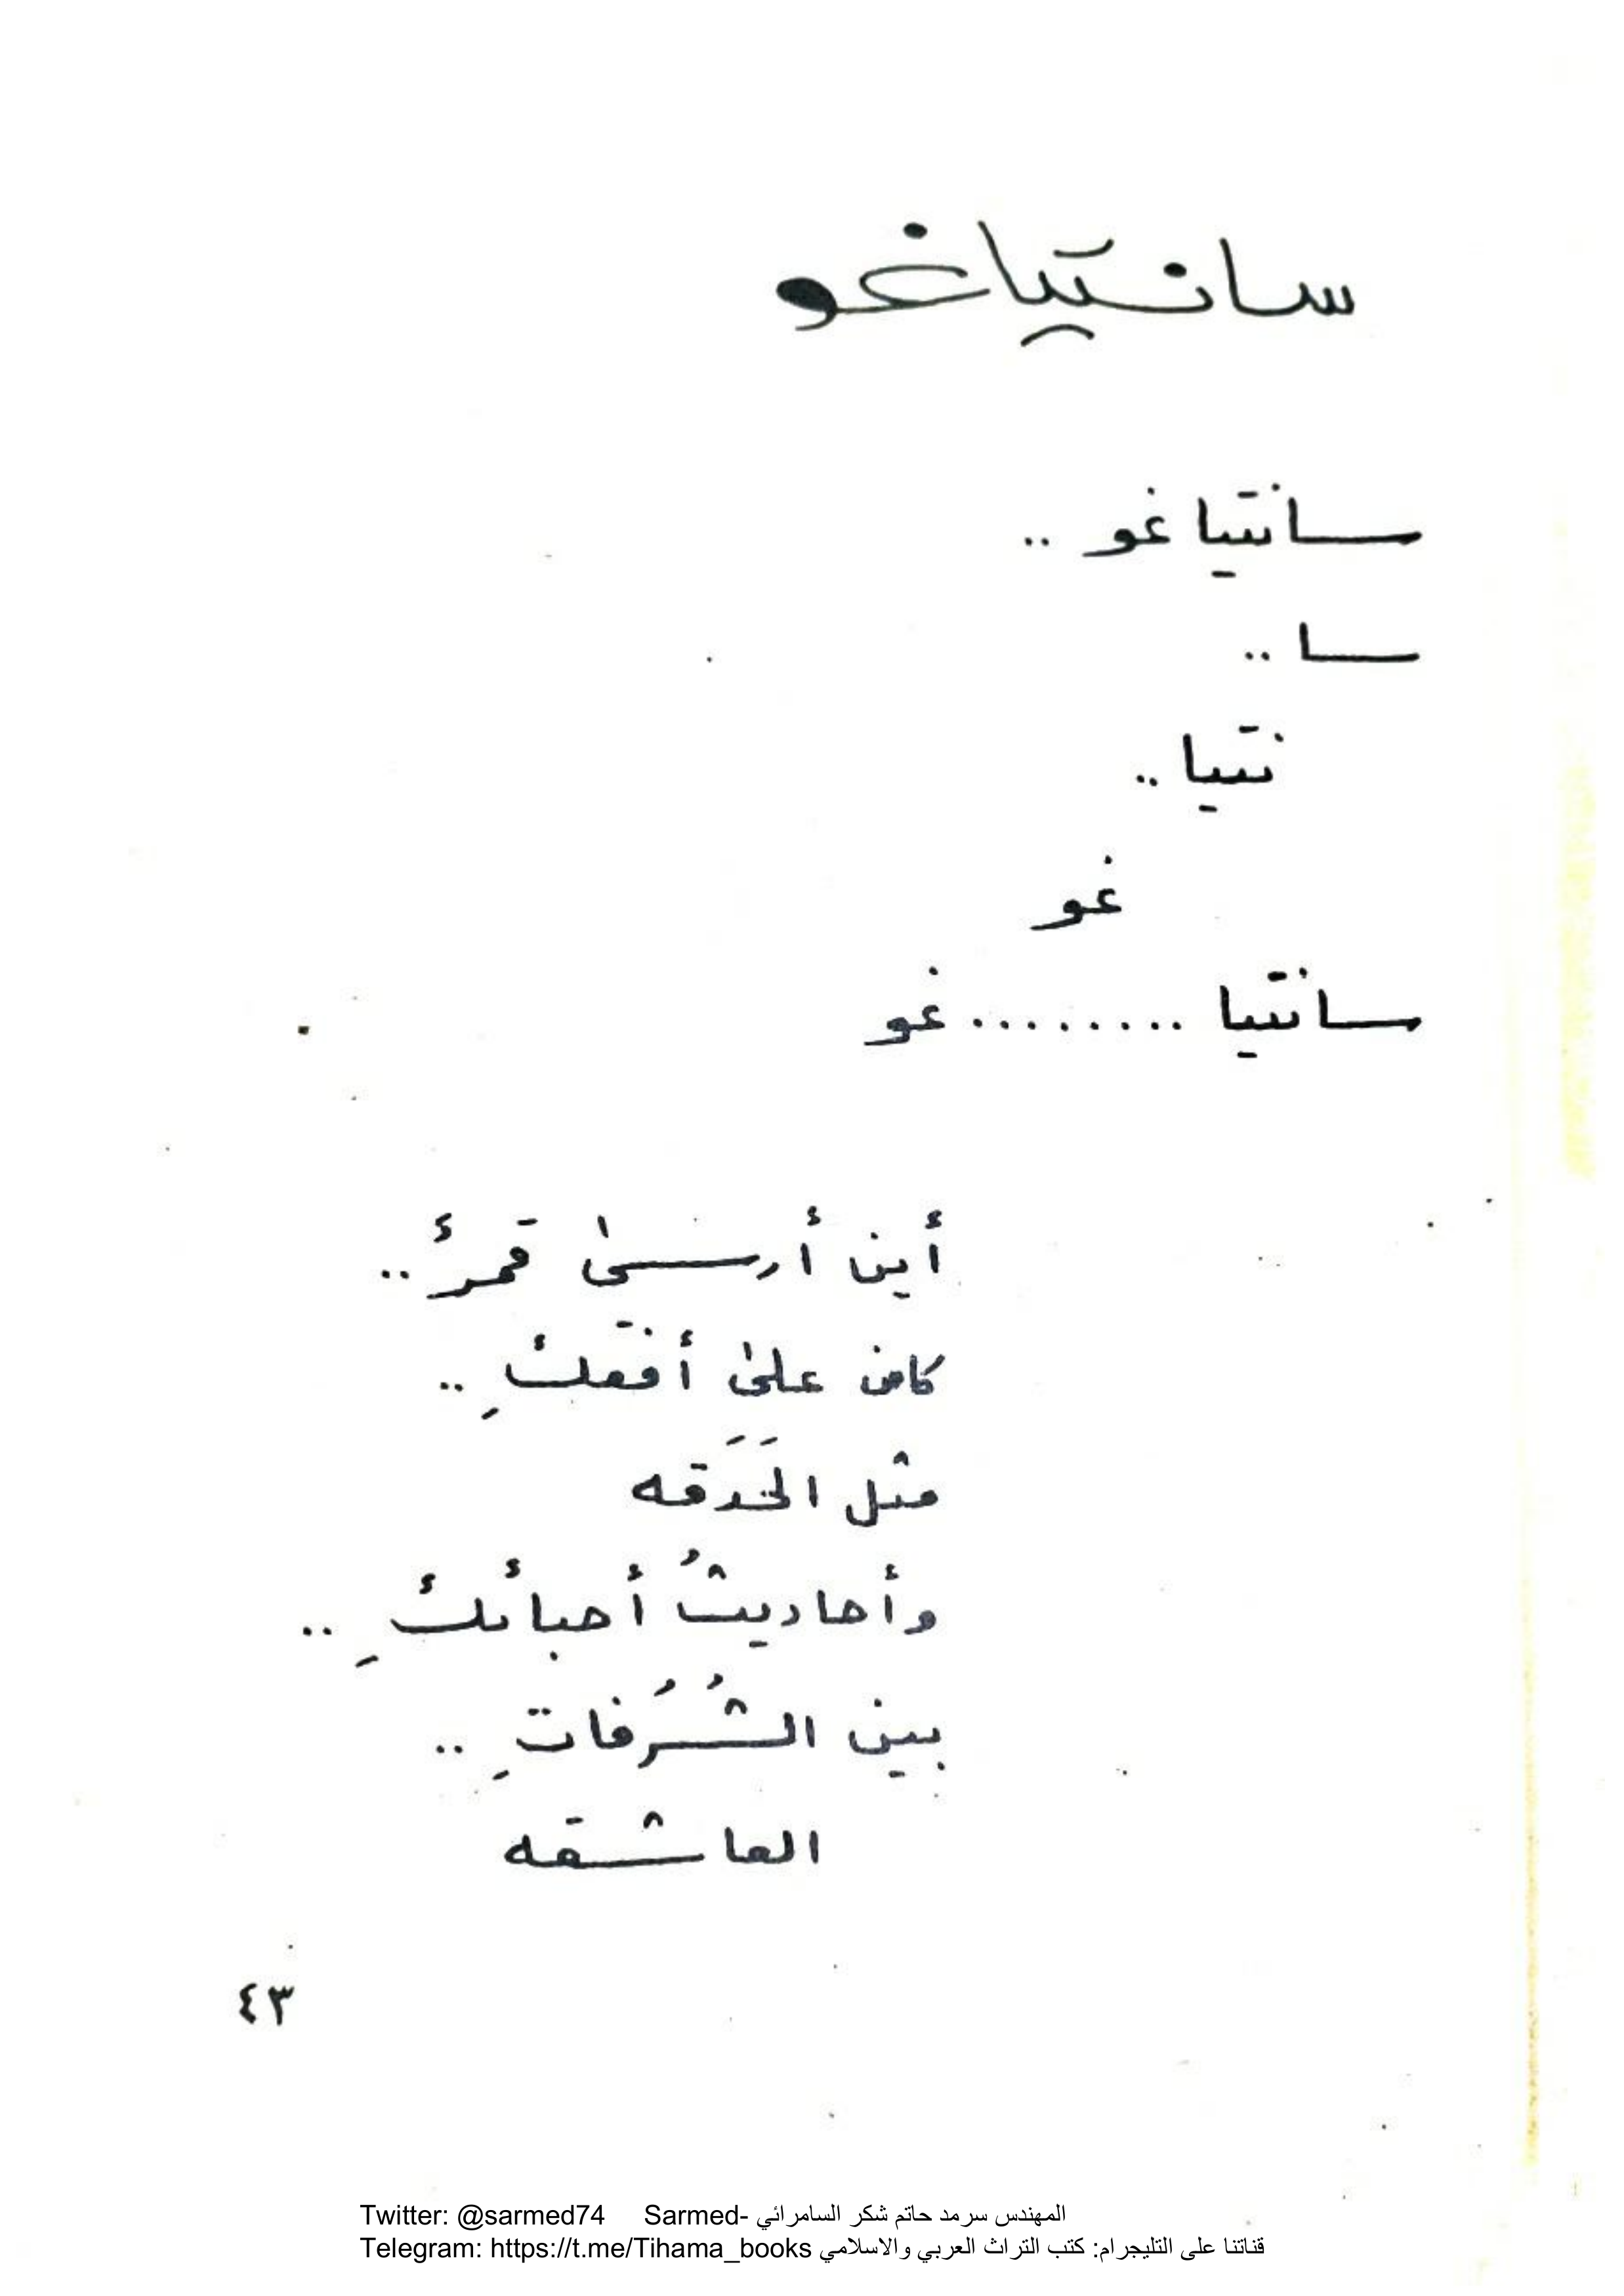 سانتياغو
سانتياغو ..
سا ..
نتيا ..
غو
سانتيا ........ غو
أين أرسىٰ قمرُكِ ..
كان علىٰ أفقكِ ..
مثل الحَدَقه
وأحاديثُ أحبائكِ ..
بين الشُرُفاتِ ..
العاشقه
٤٣
Twitter: @sarmed74 Sarmed- المهندس سرمد حاتم شكر السامرائي
Telegram: https://t.me/Tihama_books قناتنا على التليجرام: كتب التراث العربي والاسلامي